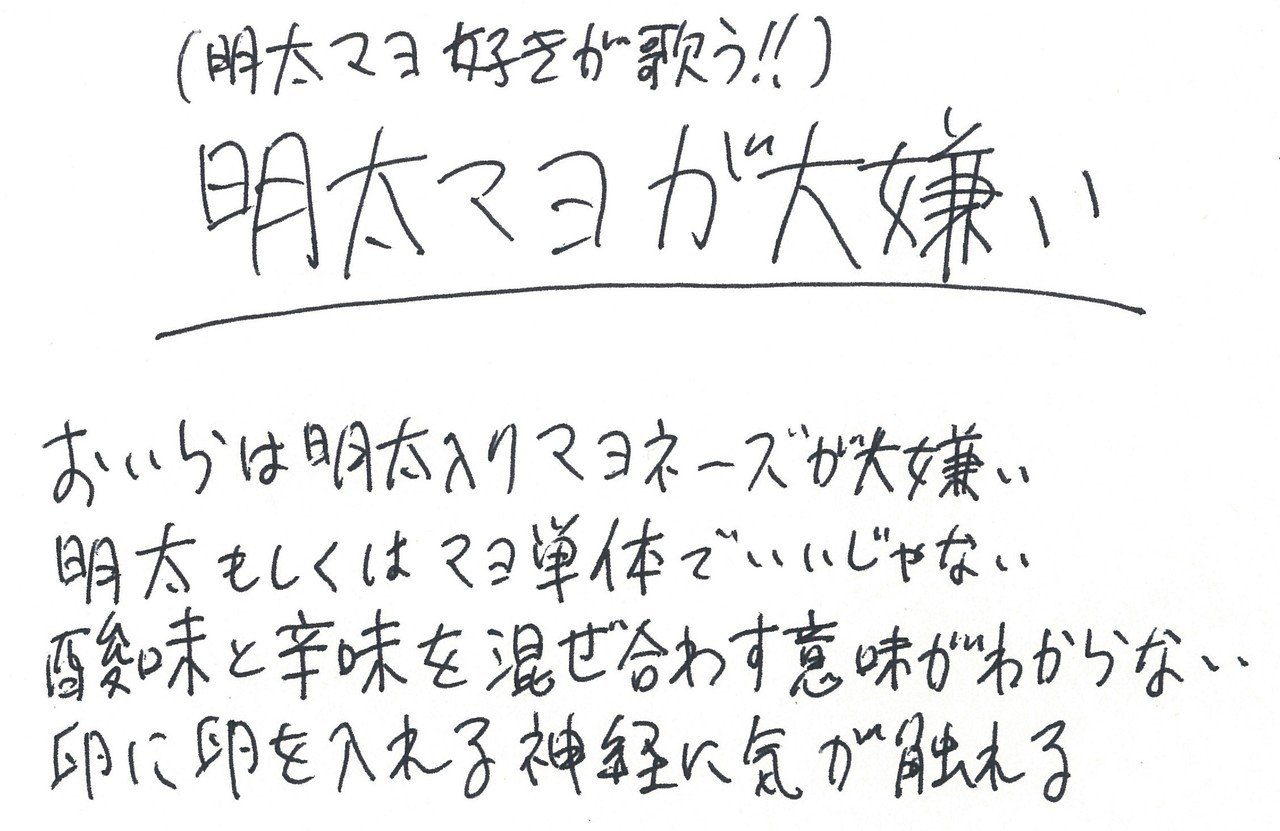 (明太マヨ好きが歌う!!)
明太マヨが大嫌い
おいらは明太入りマヨネーズが大嫌い
明太もしくはマヨ単体でいいじゃない
酸味と辛味を混ぜ合わす意味がわからない
卵に卵を入れる神経に気が触れる